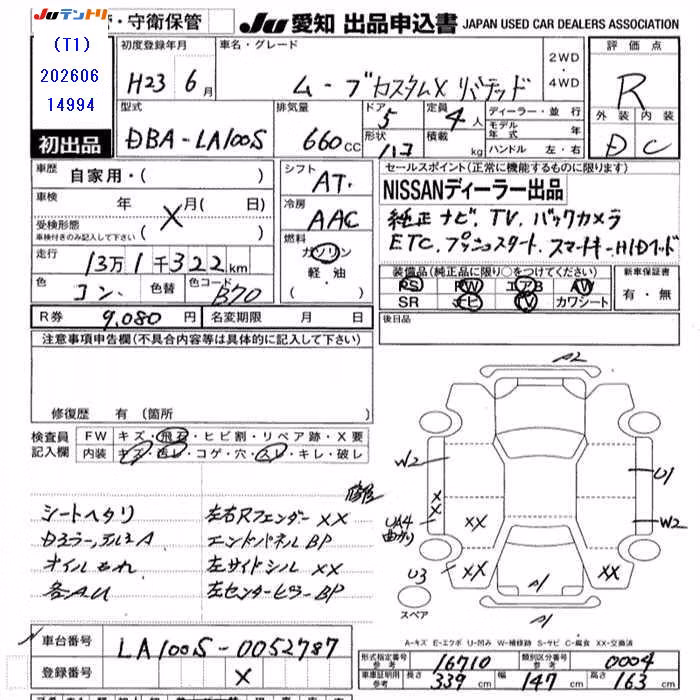 Juテントリ
・守衛保管
Ju 愛知 出品申込書 JAPAN USED CAR DEALERS ASSOCIATION
(T1)
202606
14994
初出品
初度登録年月
H23 6月
車名・グレード
ムーブカスタムX リミテッド
2WD
・
4WD
評価点
R
外装 内装
D C
型式
DBA-LA100S
排気量
660cc
ドア
5
形状
ハコ
定員
4人
積載
kg
ディーラー・並行
モデル年式 年
ハンドル 左・右
車歴
自家用・( )
車検
年 X 月( 日)
受検形態
車検付きのみ記入して下さい
( )
走行
13万1千322km
色
コン.
色替
色コード
B70
シフト
AT.
冷房
AAC
燃料
ガソリン
軽・油
( )
セールスポイント(正常に機能するものに限ります)
NISSANディーラー出品
純正ナビ、TV、バックカメラ
ETC、プッシュスタート、スマートキー・HIDヘッド
装備品(純正品に限り○をつけてください)
PS PW エアB AW
SR ナビ TV カワシート
新車保証書
有・無
R券 9,080円
名変期限 月 日
後日品
注意事項申告欄(不具合内容等は具体的に記入して下さい)
修復歴 有(箇所
検査員
記入欄
FW キズ・飛石・ヒビ割・リペア跡・X要
内装 キズ・汚レ・コゲ・穴・スレ・キレ・破レ
修復
シートヘタリ 左右Rフェンダー XX
エンドパネル BP
オイルもれ 左サイドシル XX
各AU 左センターピラー BP
A2
W2
U1
X
X
UA4
曲がり
XX
W2
U3
XX
A1
XX
スペア
A1
A-キズ E-エクボ U-凹み W-補修跡 S-サビ C-腐食 XX-交換済
車台番号 LA100S-0052787
登録番号 X
形式指定番号
参考
16710
類別区分番号
参考
0004
車庫証明用
参考
長さ 339cm 幅 147cm 高さ 163cm